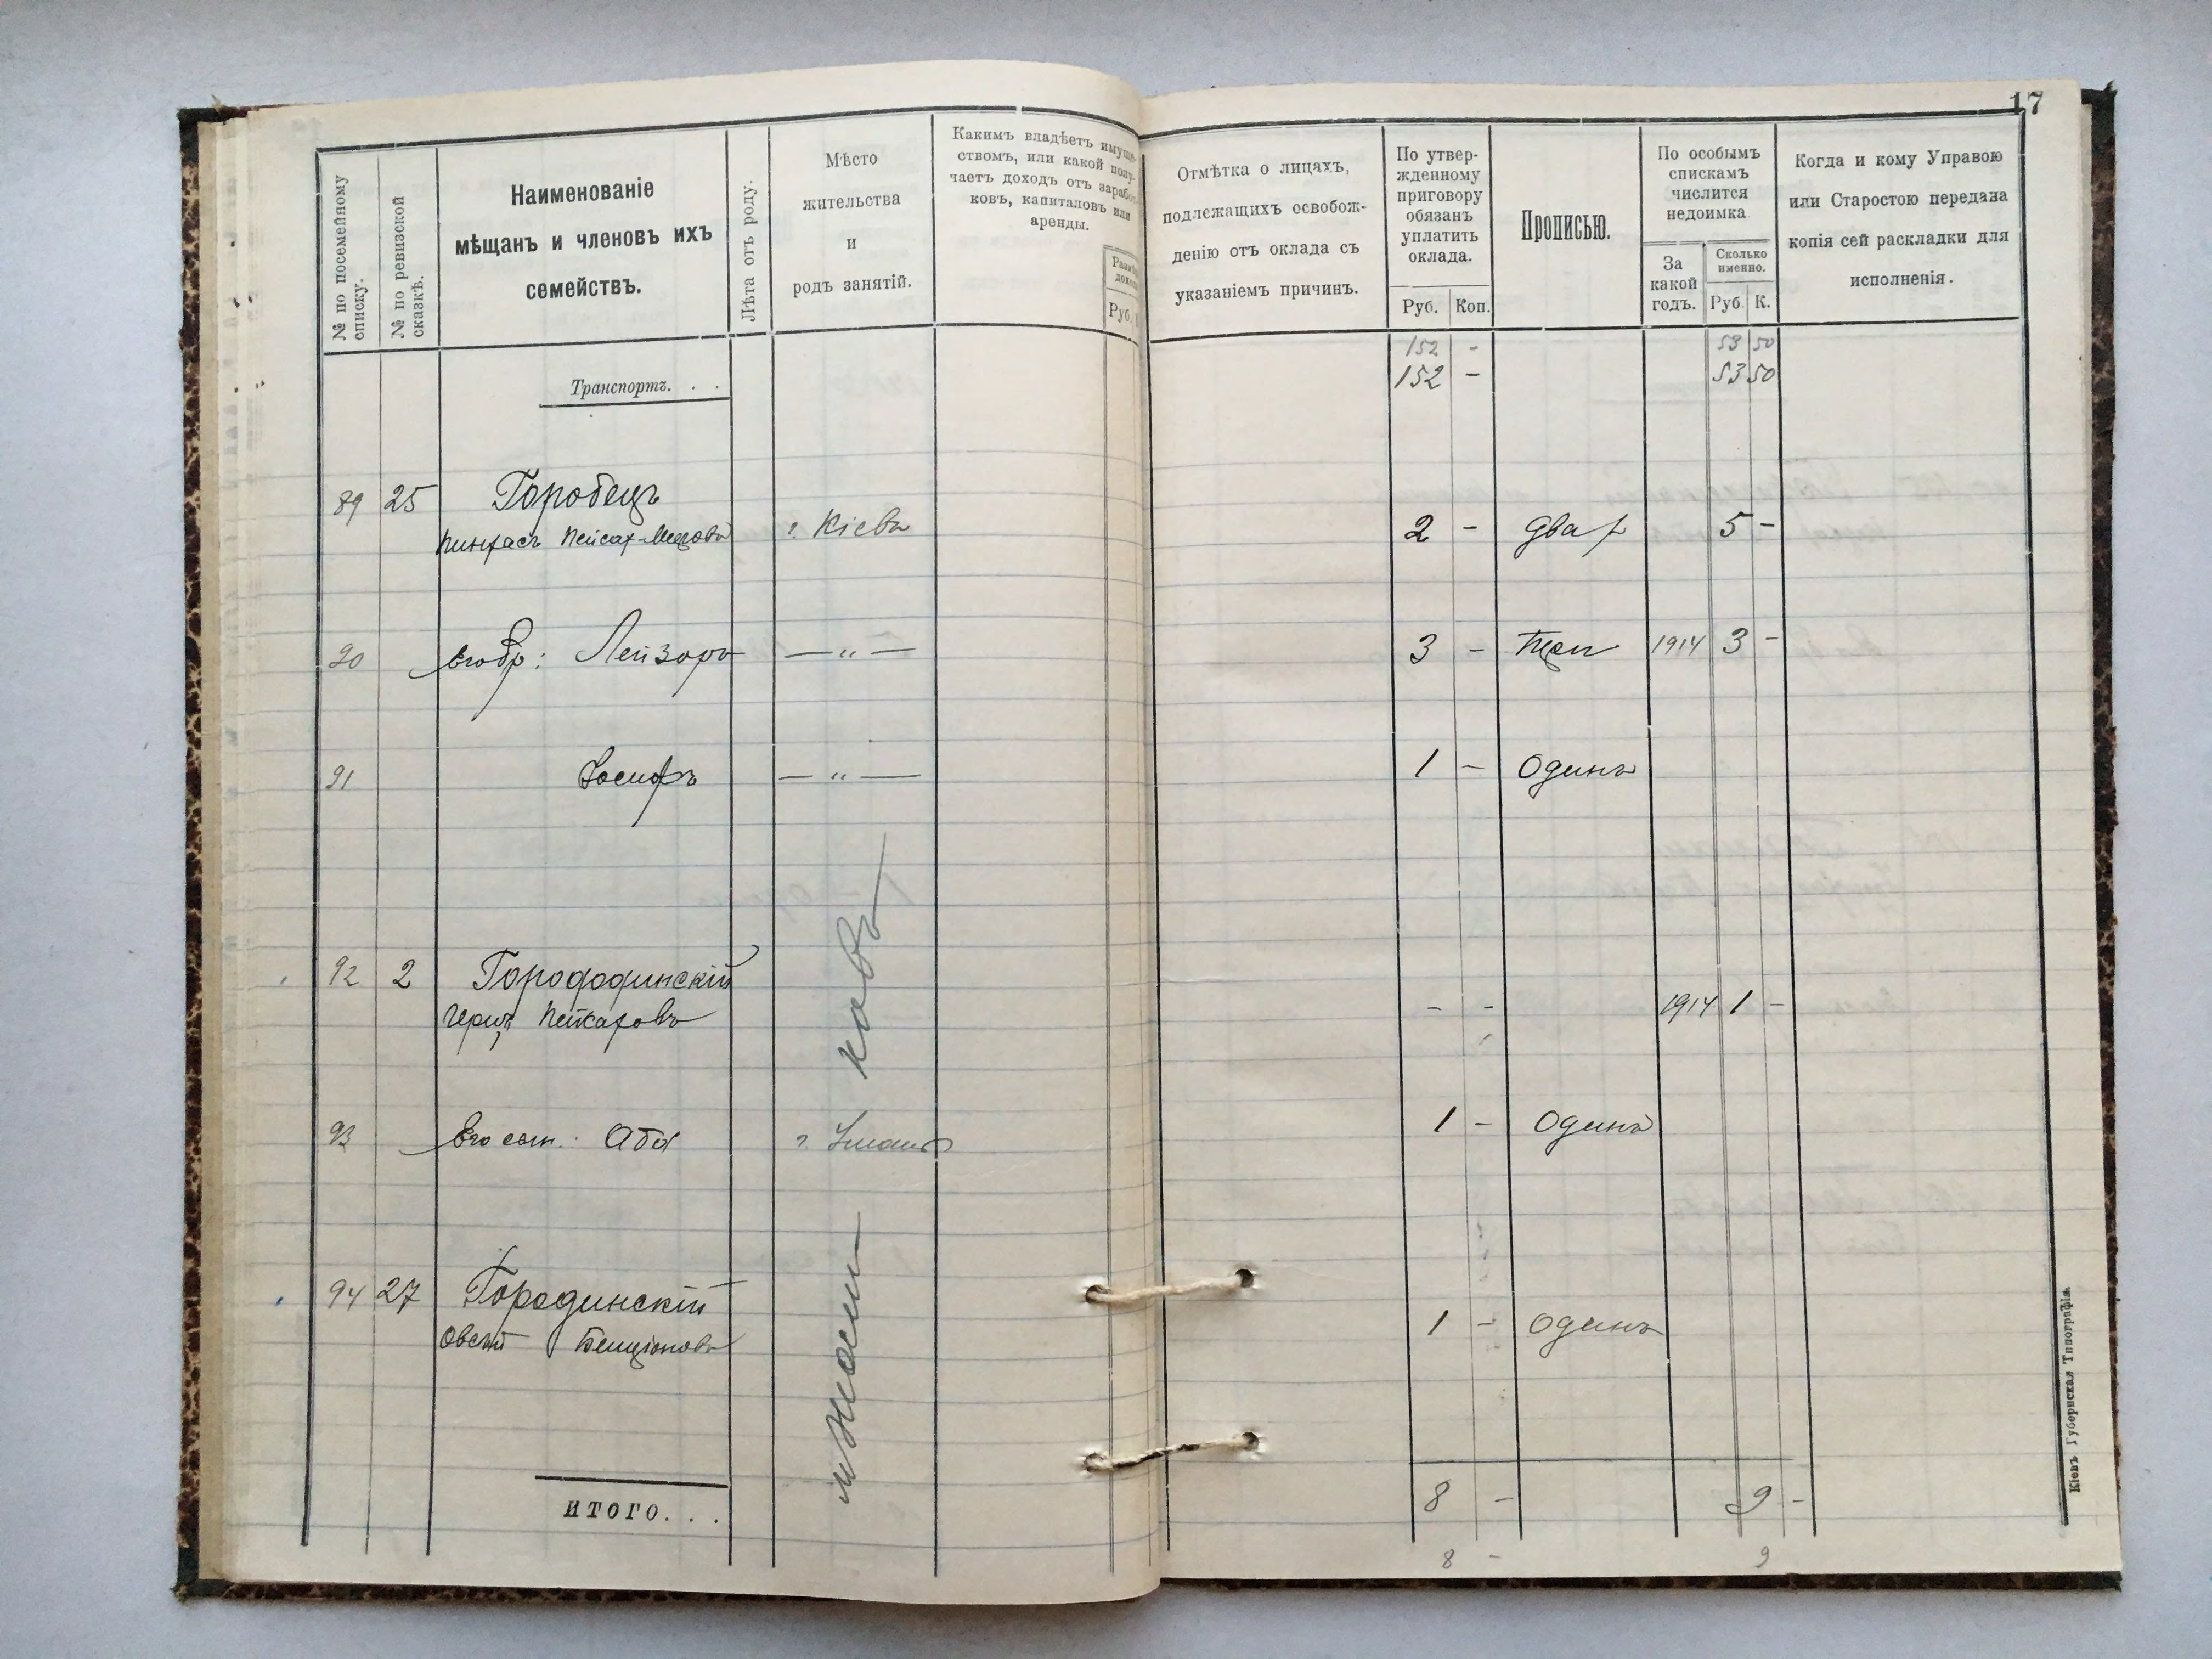 17
№ по посемейному списку.
№ по ревизской сказкѣ.
Наименованіе
мѣщанъ и членовъ ихъ
семействъ.
Лѣта отъ роду.
Мѣсто
жительства
и
родъ занятій.
Какимъ владѣетъ имуще-
ствомъ, или какой полу-
чаетъ доходъ отъ заработ
ковъ, капиталовъ или
аренды.
Руб.
Отмѣтка о лицахъ,
подлежащихъ освобож-
денію отъ оклада съ
указаніемъ причинъ.
По утвер-
жденному
приговору
обязанъ
уплатить
оклада.
Руб. Коп.
Прописью.
По особымъ
спискамъ
числится
недоимка
За
какой
годъ.
Сколько
именно.
Руб. К.
Когда и кому Управою
или Старостою передана
копія сей раскладки для
исполненія.
152 - 53 50
Транспортъ. . . 152 - 53 50
89 25 Горобецъ
Пинхасъ Пейсах- г. Кіевъ 2 - два р 5 -
90 его бр: Лейзоръ — „ — 3 - три 1914 3 -
91 Іосифъ — „ — 1 - Одинъ
92 2 Горододинскій
Герш - - 1914 1 -
93 его сын: Аба г. Умань 1 - Одинъ
94 27 Городинскій
Овсей Бенціоновъ 1 - Одинъ
ИТОГО. . . 8 - 9 -
8 - 9
Кіевъ Губернская Типографія.